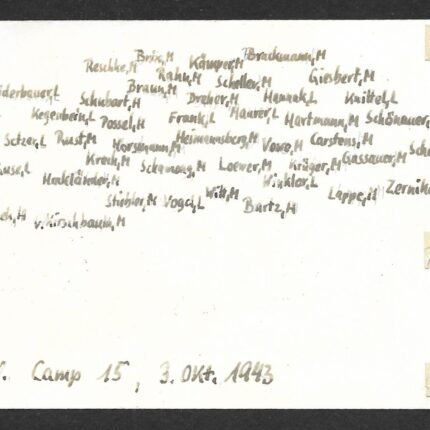 Brix, M Kämper, M Brackmann, H
Reschke, M Rahn, M Scheller, M Giesbert, M
iderbauer, L Schubart, H Braun, M Dreher, H Hannak, L Knittel, L
Kegenbein, L Possel, H Frank, L Maurer, L Hartmann, M Schönauer,
Setzer, L Rust, M Horstmann, M Heimannsberg, M Vowe, H Carstens, M Sch
use, L Krech, M Schamong, M Loewer, M Krüger, M Gassauer, M
Hackländer, M Winkler, L
Stichler, M Vogel, L Wilk, M Bartz, H Lappe, H Zernik
ch, H v. Kirschbaum, M
Camp 15, 3. Okt. 1943